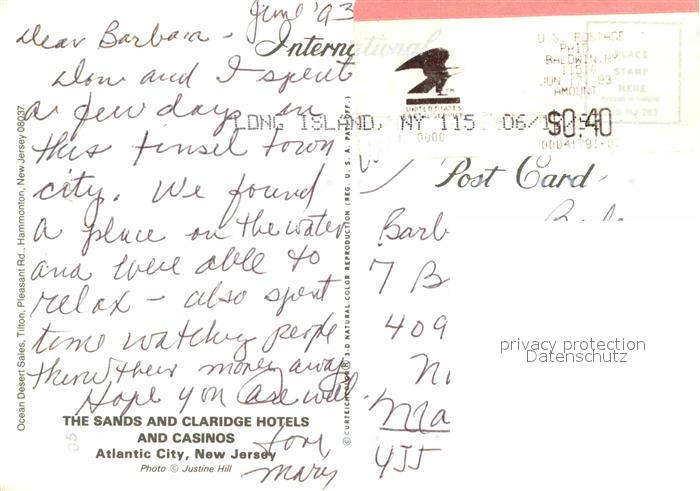 June '93
Dear Barbara -
Don and I spent
a few days in
this tinsel town
city. We found
a place on the water
and were able to
relax - also spent
time watching people
throw their money away
Hope you are well.
Love,
Mary
THE SANDS AND CLARIDGE HOTELS
AND CASINOS
Atlantic City, New Jersey
Photo © Justine Hill
Ocean Desert Sales, Tilton, Pleasant Rd., Hammonton, New Jersey 08037
© CURTEICHCOLOR® 3-D NATURAL COLOR REPRODUCTION (REG. U.S.A. PAT. OFF.)
International
Post Card
UNITED STATES
0000
U.S. POSTAGE
PAID
BALDWIN, NY
JUN 17, 93
AMOUNT
$0.40
PLACE
STAMP
HERE
LONG ISLAND, NY 115
Barb
7 B
409
N
Ma
privacy protection
Datenschutz